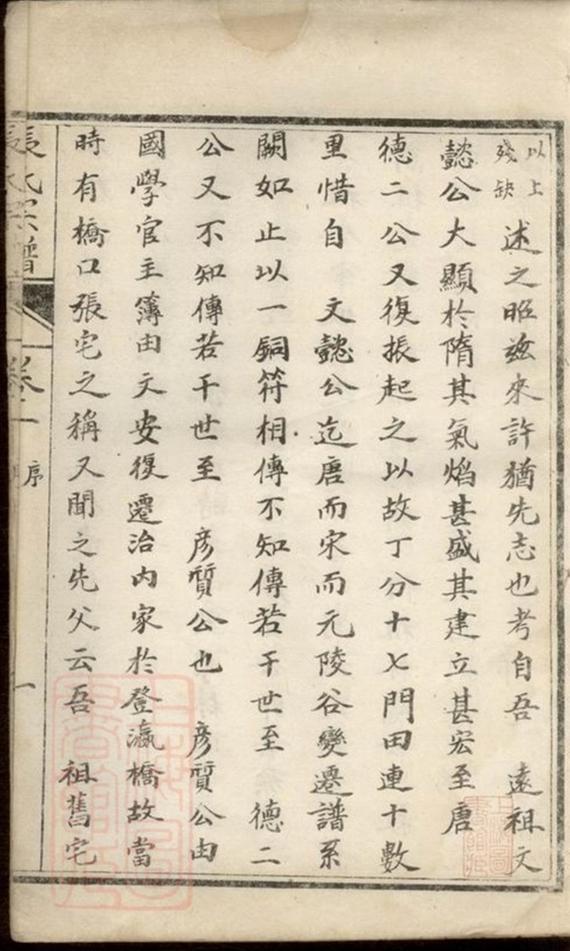 以上殘缺 述之昭玆來許猶先志也考自吾 遠祖文
懿公大顯於隋其氣焰甚盛其建立甚宏至唐
德二公又復振起之以故丁分十七門田連十數
里惜自 文懿公迄唐而宋而元陵谷變遷譜系
闕如止以一銅符相傳不知傳若干世至 德二
公又不知傳若干世至 彦質公也 彦質公由
國學官主簿由文安復遷治内家於登瀛橋故當
時有橋口張宅之稱又聞之先父云吾 祖舊宅
張氏宗譜 卷一 序 一